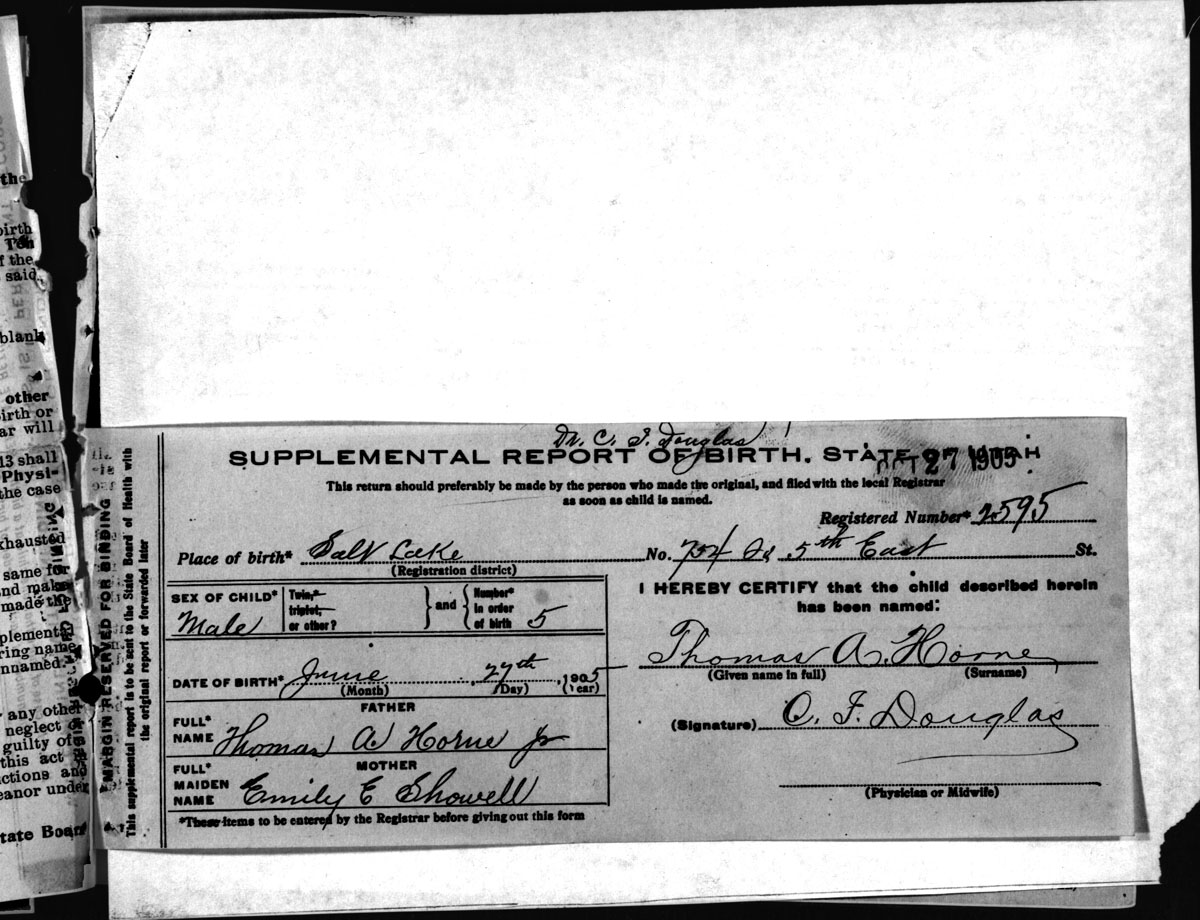 the
birth
Ten
f the
said,
blank
other
birth or
ar will
13 shall
Physi-
the case
xhausted
same for
and make
made the
pplemental
ring name
nnamed.
any other
neglect o
guilty of
this act
ctions and
eanor under
tate Board
MARGIN RESERVED FOR BINDING
This supplemental report is to be sent to the State Board of Health with
the original report or forwarded later
Dr. C. F. Douglas
SUPPLEMENTAL REPORT OF BIRTH. STATE OF UTAH
OCT 27 1905
This return should preferably be made by the person who made the original, and filed with the local Registrar
as soon as child is named.
Registered Number* 2595
Place of birth* Salt Lake No. 754 So. 5th East St.
(Registration district)
SEX OF CHILD* Male
Twin,*
triplet,
or other?
and
Number*
in order
of birth 5
DATE OF BIRTH* June 27th, 1905
(Month) (Day) (Year)
FATHER
FULL*
NAME Thomas A Horne Jr
MOTHER
FULL*
MAIDEN
NAME Emily E Showell
*These items to be entered by the Registrar before giving out this form
I HEREBY CERTIFY that the child described herein
has been named:
Thomas A. Horne
(Given name in full) (Surname)
(Signature) C. F. Douglas
(Physician or Midwife)